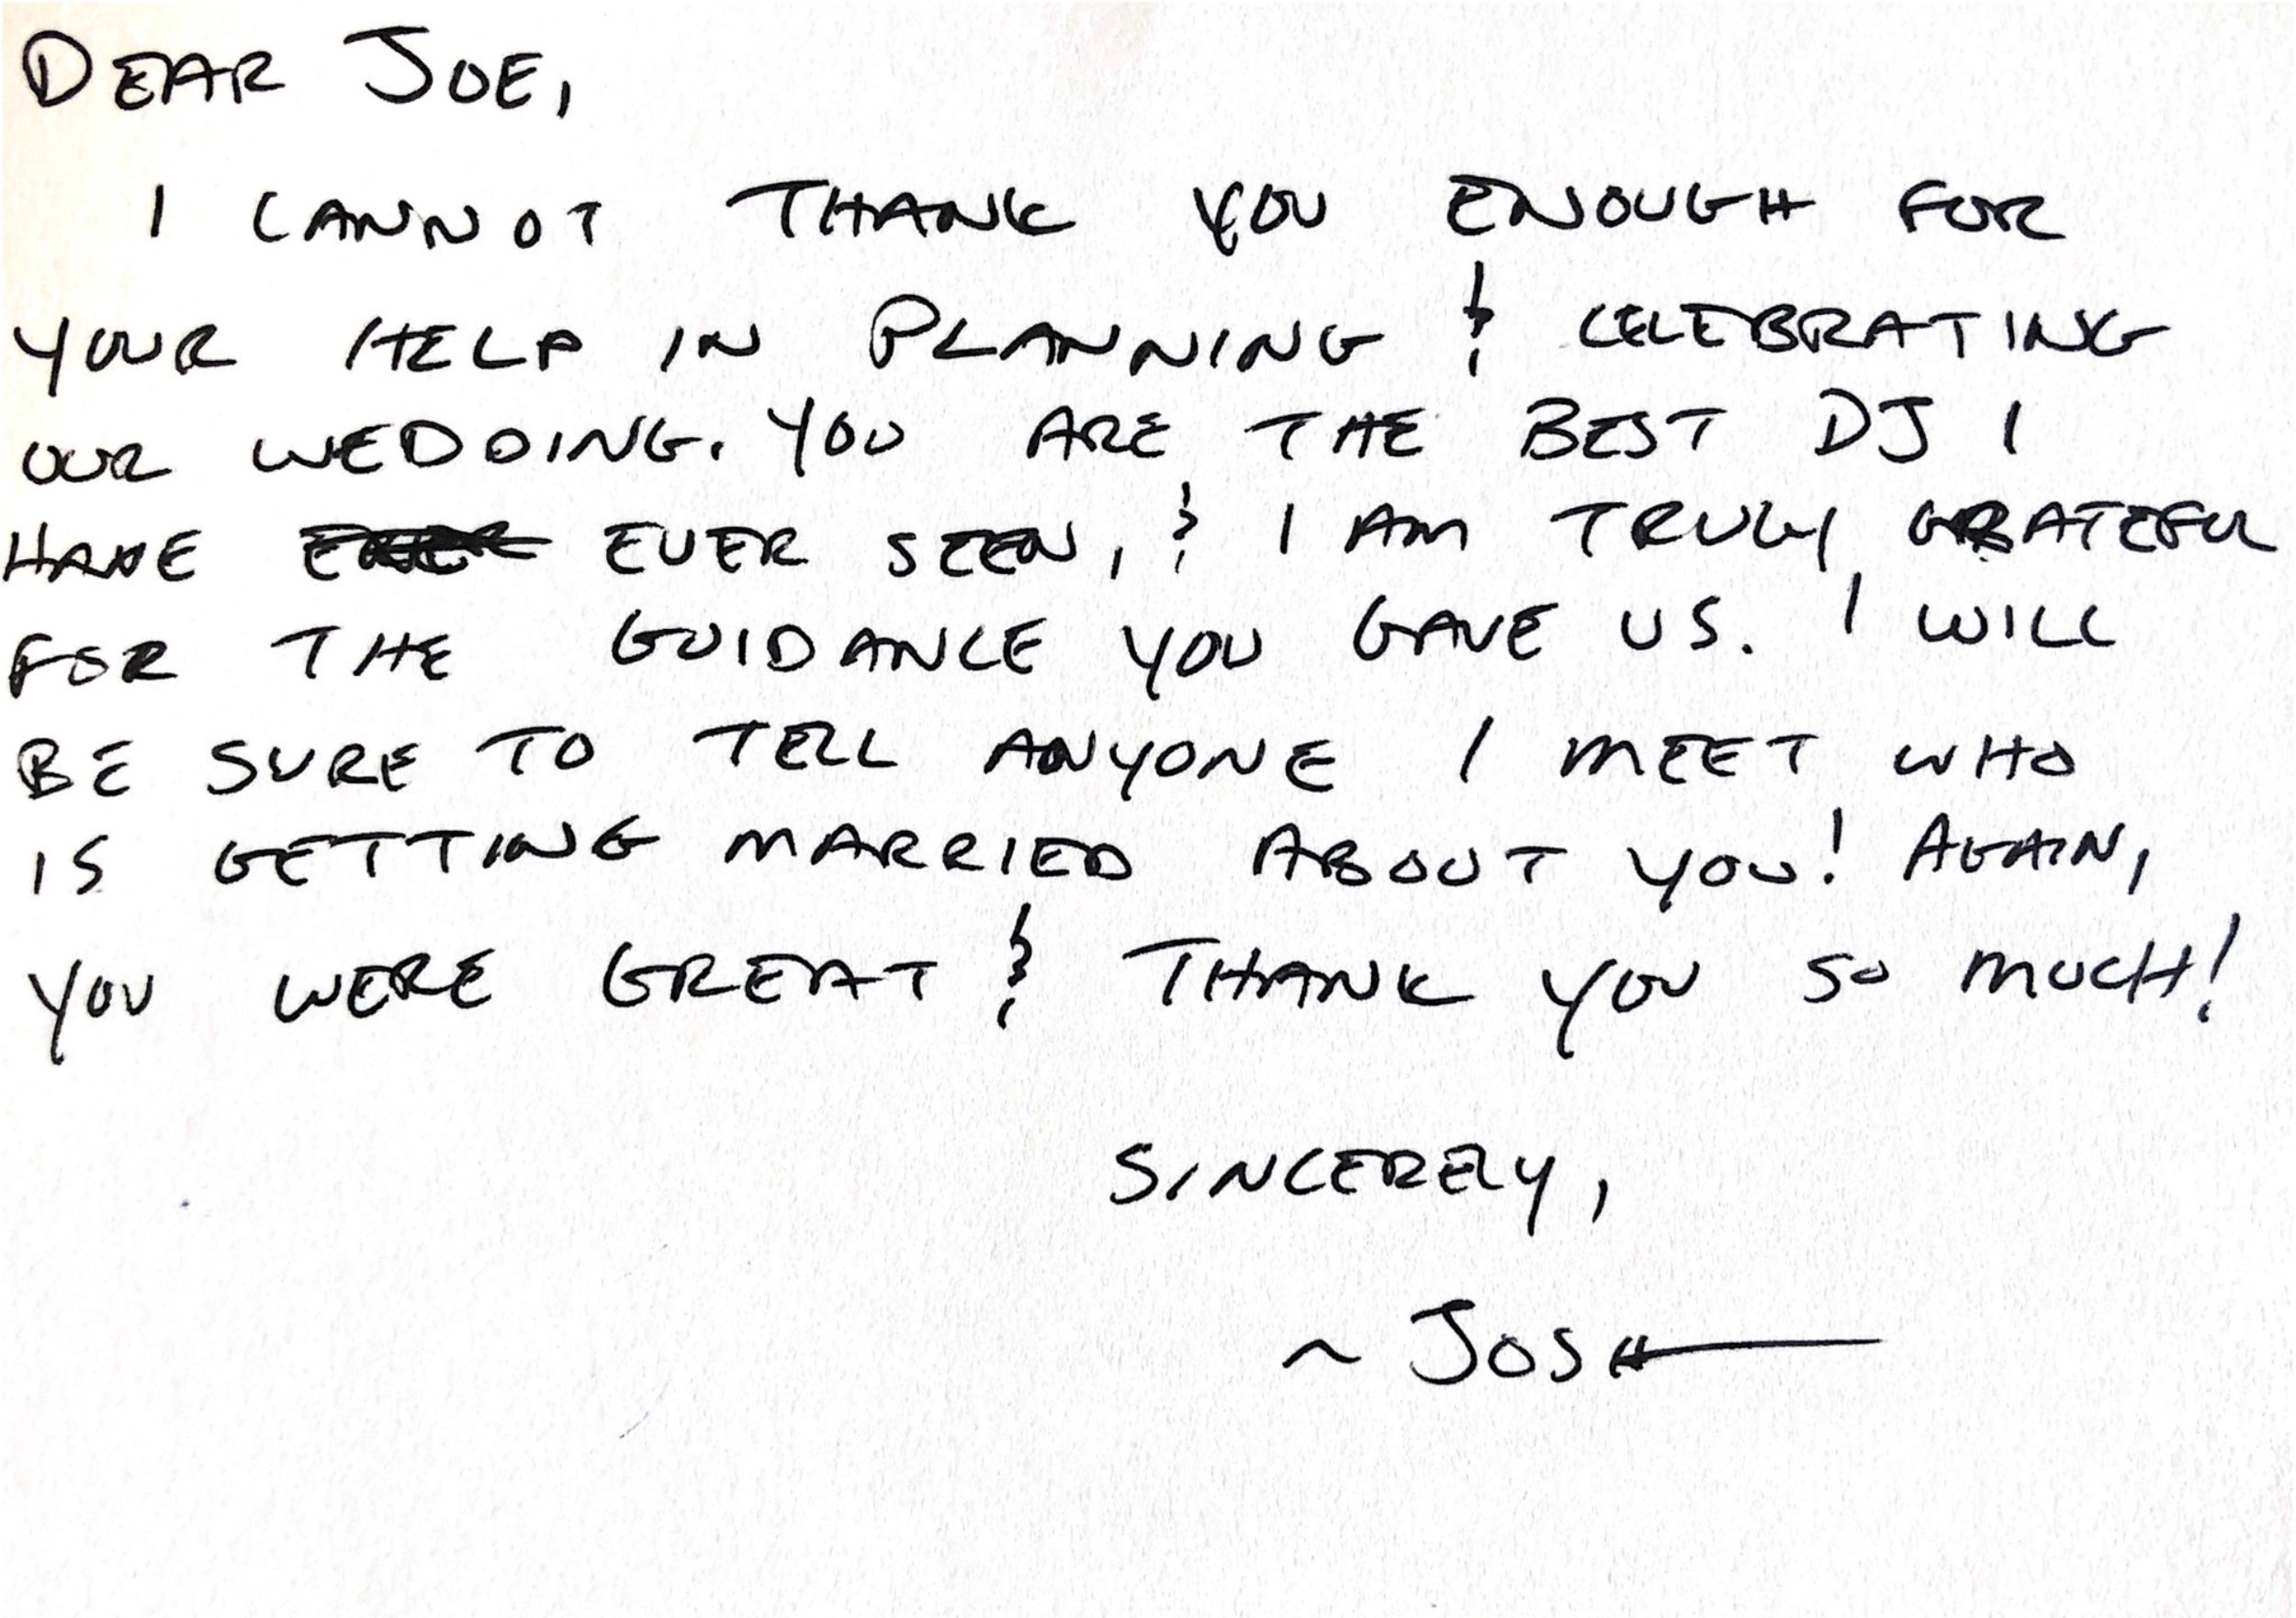 DEAR JOE,
I CANNOT THANK YOU ENOUGH FOR
YOUR HELP IN PLANNING & CELEBRATING
OUR WEDDING. YOU ARE THE BEST DJ I
HAVE EVER SEEN, & I AM TRULY GRATEFUL
FOR THE GUIDANCE YOU GAVE US. I WILL
BE SURE TO TELL ANYONE I MEET WHO
IS GETTING MARRIED ABOUT YOU! AGAIN,
YOU WERE GREAT & THANK YOU SO MUCH!
SINCERELY,
~ JOSH